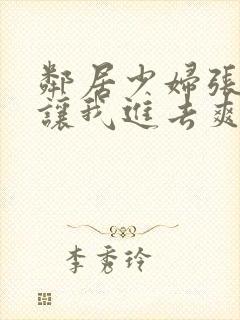 鄰居少婦張
讓我進去爽
李秀玲